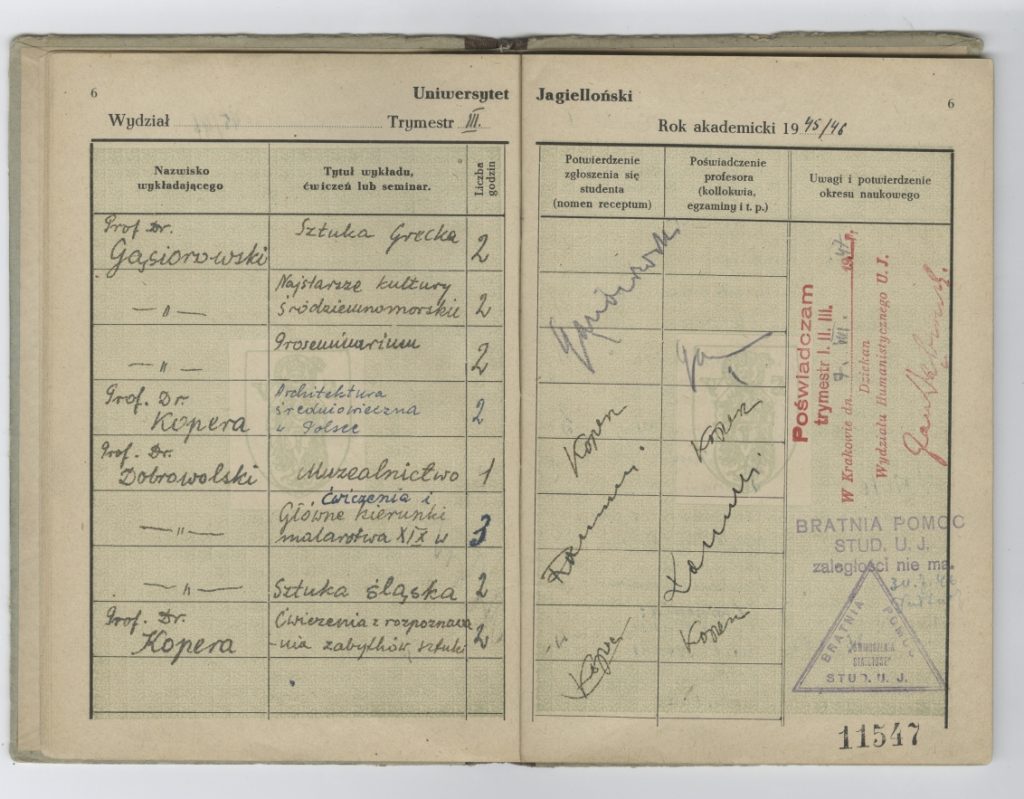 6
Uniwersytet
Wydział Trymestr III.
Nazwisko wykładającego
Tytuł wykładu, ćwiczeń lub seminar.
Liczba godzin
Prof. Dr.
Gąsiorowski
Sztuka Grecka
2
— „ —
Najstarsze kultury
śródziemnomorskie
2
— „ —
Proseminarium
2
Prof. Dr.
Kopera
Architektura
średniowieczna
w Polsce
2
Prof. Dr.
Dobrowolski
Muzealnictwo
1
— „ —
Ćwiczenia i
Główne kierunki
malarstwa XIX w
3
— „ —
Sztuka śląska
2
Prof. Dr.
Kopera
Ćwiczenia z rozpozna
-nia zabytków sztuki
2
Jagielloński
6
Rok akademicki 1945/46
Potwierdzenie
zgłoszenia się
studenta
(nomen receptum)
Poświadczenie
profesora
(kollokwia,
egzaminy i t. p.)
Uwagi i potwierdzenie
okresu naukowego
Gąsiorowski
Kopera
Kopera
Kopera
Kopera
Poświadczam
trymestr I. II. III.
W Krakowie dn. 7. VII. 1947 r.
Dziekan
Wydziału Humanistycznego U. J.
BRATNIA POMOC
STUD. U. J.
zaległości nie ma.
BRATNIA POMOC
STUD. U. J.
11547